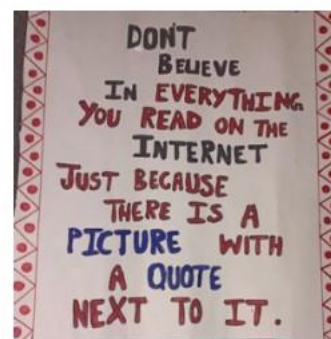 DON'T
BELIEVE
IN EVERYTHING
YOU READ ON THE
INTERNET
JUST BECAUSE
THERE IS A
PICTURE WITH
A QUOTE
NEXT TO IT.